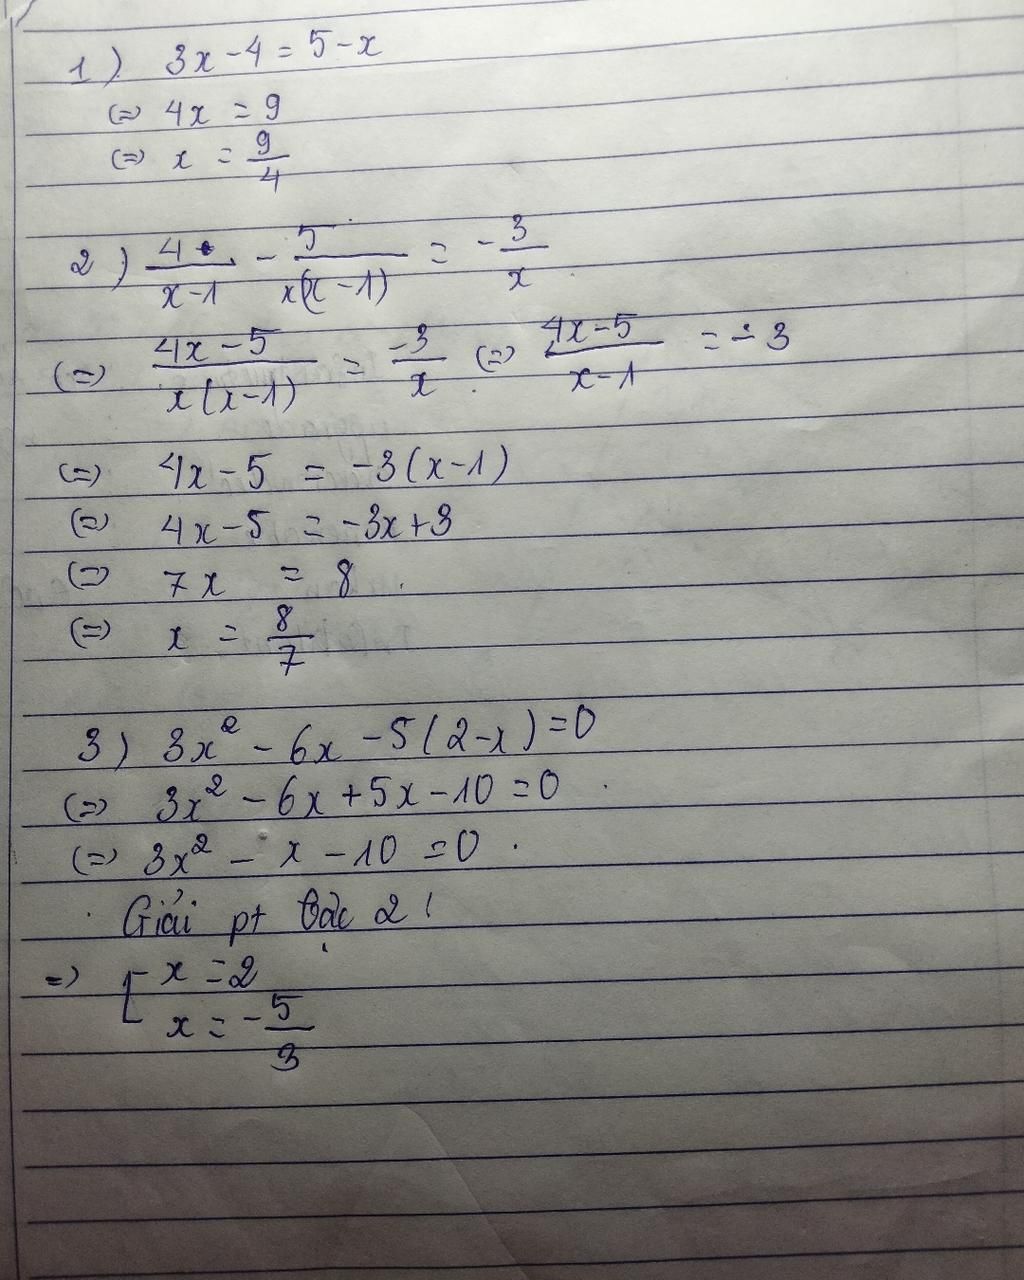 1) 3x - 4 = 5 - x
(=) 4x = 9
(=) x = 9/4
2) 4/(x-1) - 5/(x(x-1)) = -3/x
(=) (4x-5)/(x(x-1)) = -3/x (=) (4x-5)/(x-1) = -3
(=) 4x - 5 = -3(x-1)
(=) 4x - 5 = -3x + 3
(=) 7x = 8
(=) x = 8/7
3) 3x² - 6x - 5(2-x) = 0
(=) 3x² - 6x + 5x - 10 = 0
(=) 3x² - x - 10 = 0
Giải pt bậc 2!
=) [ x = 2
x = -5/3